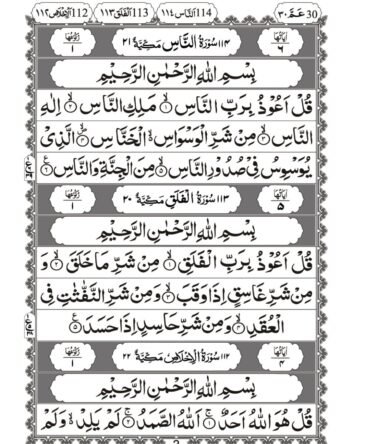 30 عمّ ٣٠ 114 النّاس ١١٤ 113 الفلق ١١٣ 112 الإخلاص ١١٢
اٰيَاتُهَا ٦ ١١٤ سُوْرَةُ النَّاسِ مَكِّيَّةٌ ٢١ رُكُوْعُهَا ١
بِسْمِ اللهِ الرَّحْمٰنِ الرَّحِيْمِ
قُلْ اَعُوْذُ بِرَبِّ النَّاسِ ۙ١ مَلِكِ النَّاسِ ۙ٢ اِلٰهِ
النَّاسِ ۙ٣ مِنْ شَرِّ الْوَسْوَاسِ ۙ الْخَنَّاسِ ۙ٤ الَّذِيْ
يُوَسْوِسُ فِيْ صُدُوْرِ النَّاسِ ۙ٥ مِنَ الْجِنَّةِ وَالنَّاسِ ۧ٦
اٰيَاتُهَا ٥ ١١٣ سُوْرَةُ الْفَلَقِ مَكِّيَّةٌ ٢٠ رُكُوْعُهَا ١
بِسْمِ اللهِ الرَّحْمٰنِ الرَّحِيْمِ
قُلْ اَعُوْذُ بِرَبِّ الْفَلَقِ ۙ١ مِنْ شَرِّ مَا خَلَقَ ۙ٢ وَ
مِنْ شَرِّ غَاسِقٍ اِذَا وَقَبَ ۙ٣ وَمِنْ شَرِّ النَّفّٰثٰتِ فِي
الْعُقَدِ ۙ٤ وَمِنْ شَرِّ حَاسِدٍ اِذَا حَسَدَ ۧ٥
اٰيَاتُهَا ٤ ١١٢ سُوْرَةُ الْاِخْلَاصِ مَكِّيَّةٌ ٢٢ رُكُوْعُهَا ١
بِسْمِ اللهِ الرَّحْمٰنِ الرَّحِيْمِ
قُلْ هُوَ اللهُ اَحَدٌ ۚ١ اَللهُ الصَّمَدُ ۚ٢ لَمْ يَلِدْ ۙ٥ وَلَمْ